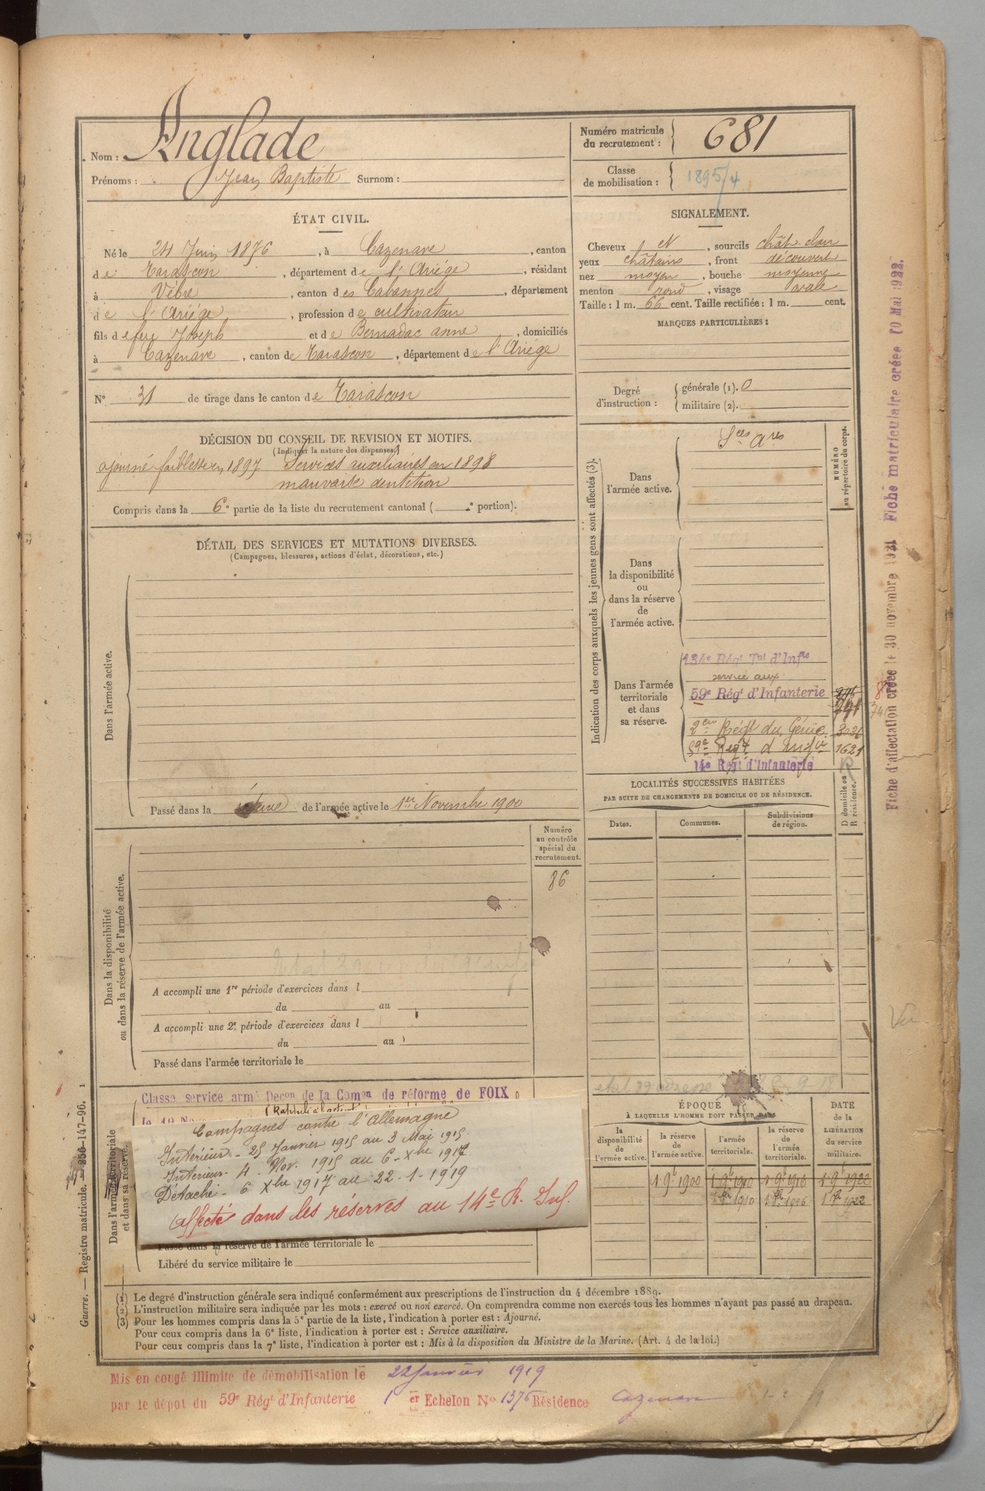 Nom : Anglade
Prénoms : Jean Baptiste Surnom :
Numéro matricule du recrutement : 681
Classe de mobilisation : 1895/4
ÉTAT CIVIL.
Né le 24 Juin 1876, à Cazenave, canton
de Tarascon, département de l'Ariége, résidant
à Vèbre, canton des Cabannes, département
de l'Ariége, profession de cultivateur
fils de feu Joseph et de Bernadac anne, domiciliés
à Cazenave, canton de Tarascon, département de l'Ariége
N° 31 de tirage dans le canton de Tarascon
SIGNALEMENT.
Cheveux et, sourcils chât. clair
yeux châtains, front découvert
nez moyen, bouche moyenne
menton rond, visage ovale
Taille : 1 m. 66 cent. Taille rectifiée : 1 m. cent.
MARQUES PARTICULIÈRES :
Degré d'instruction : générale (1). 0
militaire (2).
DÉCISION DU CONSEIL DE REVISION ET MOTIFS.
(Indiquer la nature des dispenses.)
ajourné faiblesse en 1897 Services auxiliaires en 1898
mauvaise dentition
Compris dans la 6e partie de la liste du recrutement cantonal ( e portion).
DÉTAIL DES SERVICES ET MUTATIONS DIVERSES.
(Campagnes, blessures, actions d'éclat, décorations, etc.)
Dans l'armée active.
Passé dans la réserve de l'armée active le 1er Novembre 1900
Indication des corps auxquels les jeunes gens sont affectés (3).
NUMÉRO au répertoire du corps.
Dans l'armée active.
Sces Ares
Dans la disponibilité ou dans la réserve de l'armée active.
Dans l'armée territoriale et dans sa réserve.
134e Régt Tal d'Infie
service aux
59e Régt d'Infanterie
2eme Régt du Génie
59e Regt d'Infie 1621
14e Regt d'Infanterie
LOCALITÉS SUCCESSIVES HABITÉES
PAR SUITE DE CHANGEMENTS DE DOMICILE OU DE RÉSIDENCE.
Dates. Communes. Subdivisions de région. D domicile ou R résidence.
Numéro au contrôle spécial du recrutement.
86
Dans la disponibilité ou dans la réserve de l'armée active.
A accompli une 1re période d'exercices dans l
du au
A accompli une 2e période d'exercices dans l
du au
Passé dans l'armée territoriale le
Dans l'armée territoriale et dans sa réserve.
Classé service armé Decon de la Comon de réforme de FOIX
Campagnes contre l'Allemagne
Intérieur - 25 Janvier 1915 au 3 Mai 1915
Intérieur - 4 Nov. 1915 au 6 Xbre 1917
Détaché - 6 Xbre 1917 au 22-1-1919
Affecté dans les réserves au 14e R. Inf.
Passé dans la réserve de l'armée territoriale le
Libéré du service militaire le
ÉPOQUE
À LAQUELLE L'HOMME DOIT PASSER DANS
la disponibilité de l'armée active. la réserve de l'armée active. l'armée territoriale. la réserve de l'armée territoriale.
DATE de la LIBÉRATION du service militaire.
(1) Le degré d'instruction générale sera indiqué conformément aux prescriptions de l'instruction du 4 décembre 1889.
(2) L'instruction militaire sera indiquée par les mots : exercé ou non exercé. On comprendra comme non exercés tous les hommes n'ayant pas passé au drapeau.
(3) Pour les hommes compris dans la 5e partie de la liste, l'indication à porter est : Ajourné.
Pour ceux compris dans la 6e liste, l'indication à porter est : Service auxiliaire.
Pour ceux compris dans la 7e liste, l'indication à porter est : Mis à la disposition du Ministre de la Marine. (Art. 4 de la loi.)
Mis en congé illimité de démobilisation le 22 Janvier 1919
par le dépot du 59e Régt d'Infanterie 1er Echelon No 1376 Résidence Cazenave
Guerre. — Registre matricule.
Fiche d'affectation créée le 30 novembre 1921 Fiche matriculaire créée 10 Mai 1922.